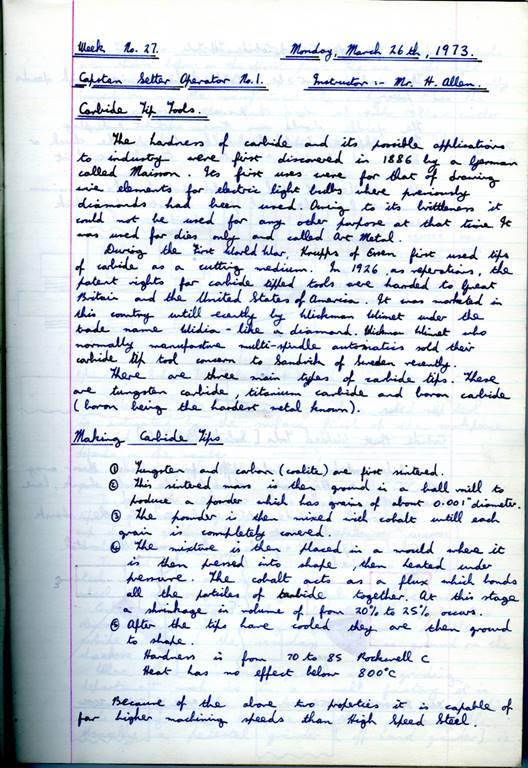 Week No. 27. Monday, March 26th, 1973.
Capstan Setter Operator No.1. Instructor :- Mr. H. Allen.
Carbide Tip Tools.
The hardness of carbide and its possible applications
to industry were first discovered in 1886 by a German
called Maisson. Its first uses were for that of drawing
wire elements for electric light bulbs where previously
diamonds had been used. Owing to its brittleness it
could not be used for any other purpose at that time. It
was used for dies only and called Art Metal.
During the First World War, Krupps of Essen first used tips
of carbide as a cutting medium. In 1926, as reperations, the
patent rights for carbide tipped tools were handed to Great
Britain and the United States of America. It was marketed in
this country untill recently by Wickman Wimet under the
trade name Widia - like in diamond. Wickman Wimet who
normally manufacture multi-spindle automatics sold their
carbide tip tool concern to Sandvik of Sweden recently.
There are three main types of carbide tips. These
are tungsten carbide, titanium carbide and boron carbide
(boron being the hardest metal known).
Making Carbide Tips
① Tungsten and carbon (coalite) are first sintered.
② This sintered mass is then ground in a ball mill to
produce a powder which has grains of about 0.001" diameter.
③ The powder is then mixed with cobalt untill each
grain is completely covered.
④ The mixture is then placed in a mould where it
is then pressed into shape, then heated under
pressure. The cobalt acts as a flux which bonds
all the particles of carbide together. At this stage
a shrinkage in volume of from 20% to 25% occurs.
⑤ After the tips have cooled they are then ground
to shape.
Hardness is from 70 to 85 Rockwell C
Heat has no effect below 800°C
Because of the above two properties it is capable of
far higher machining speeds than High Speed Steel.